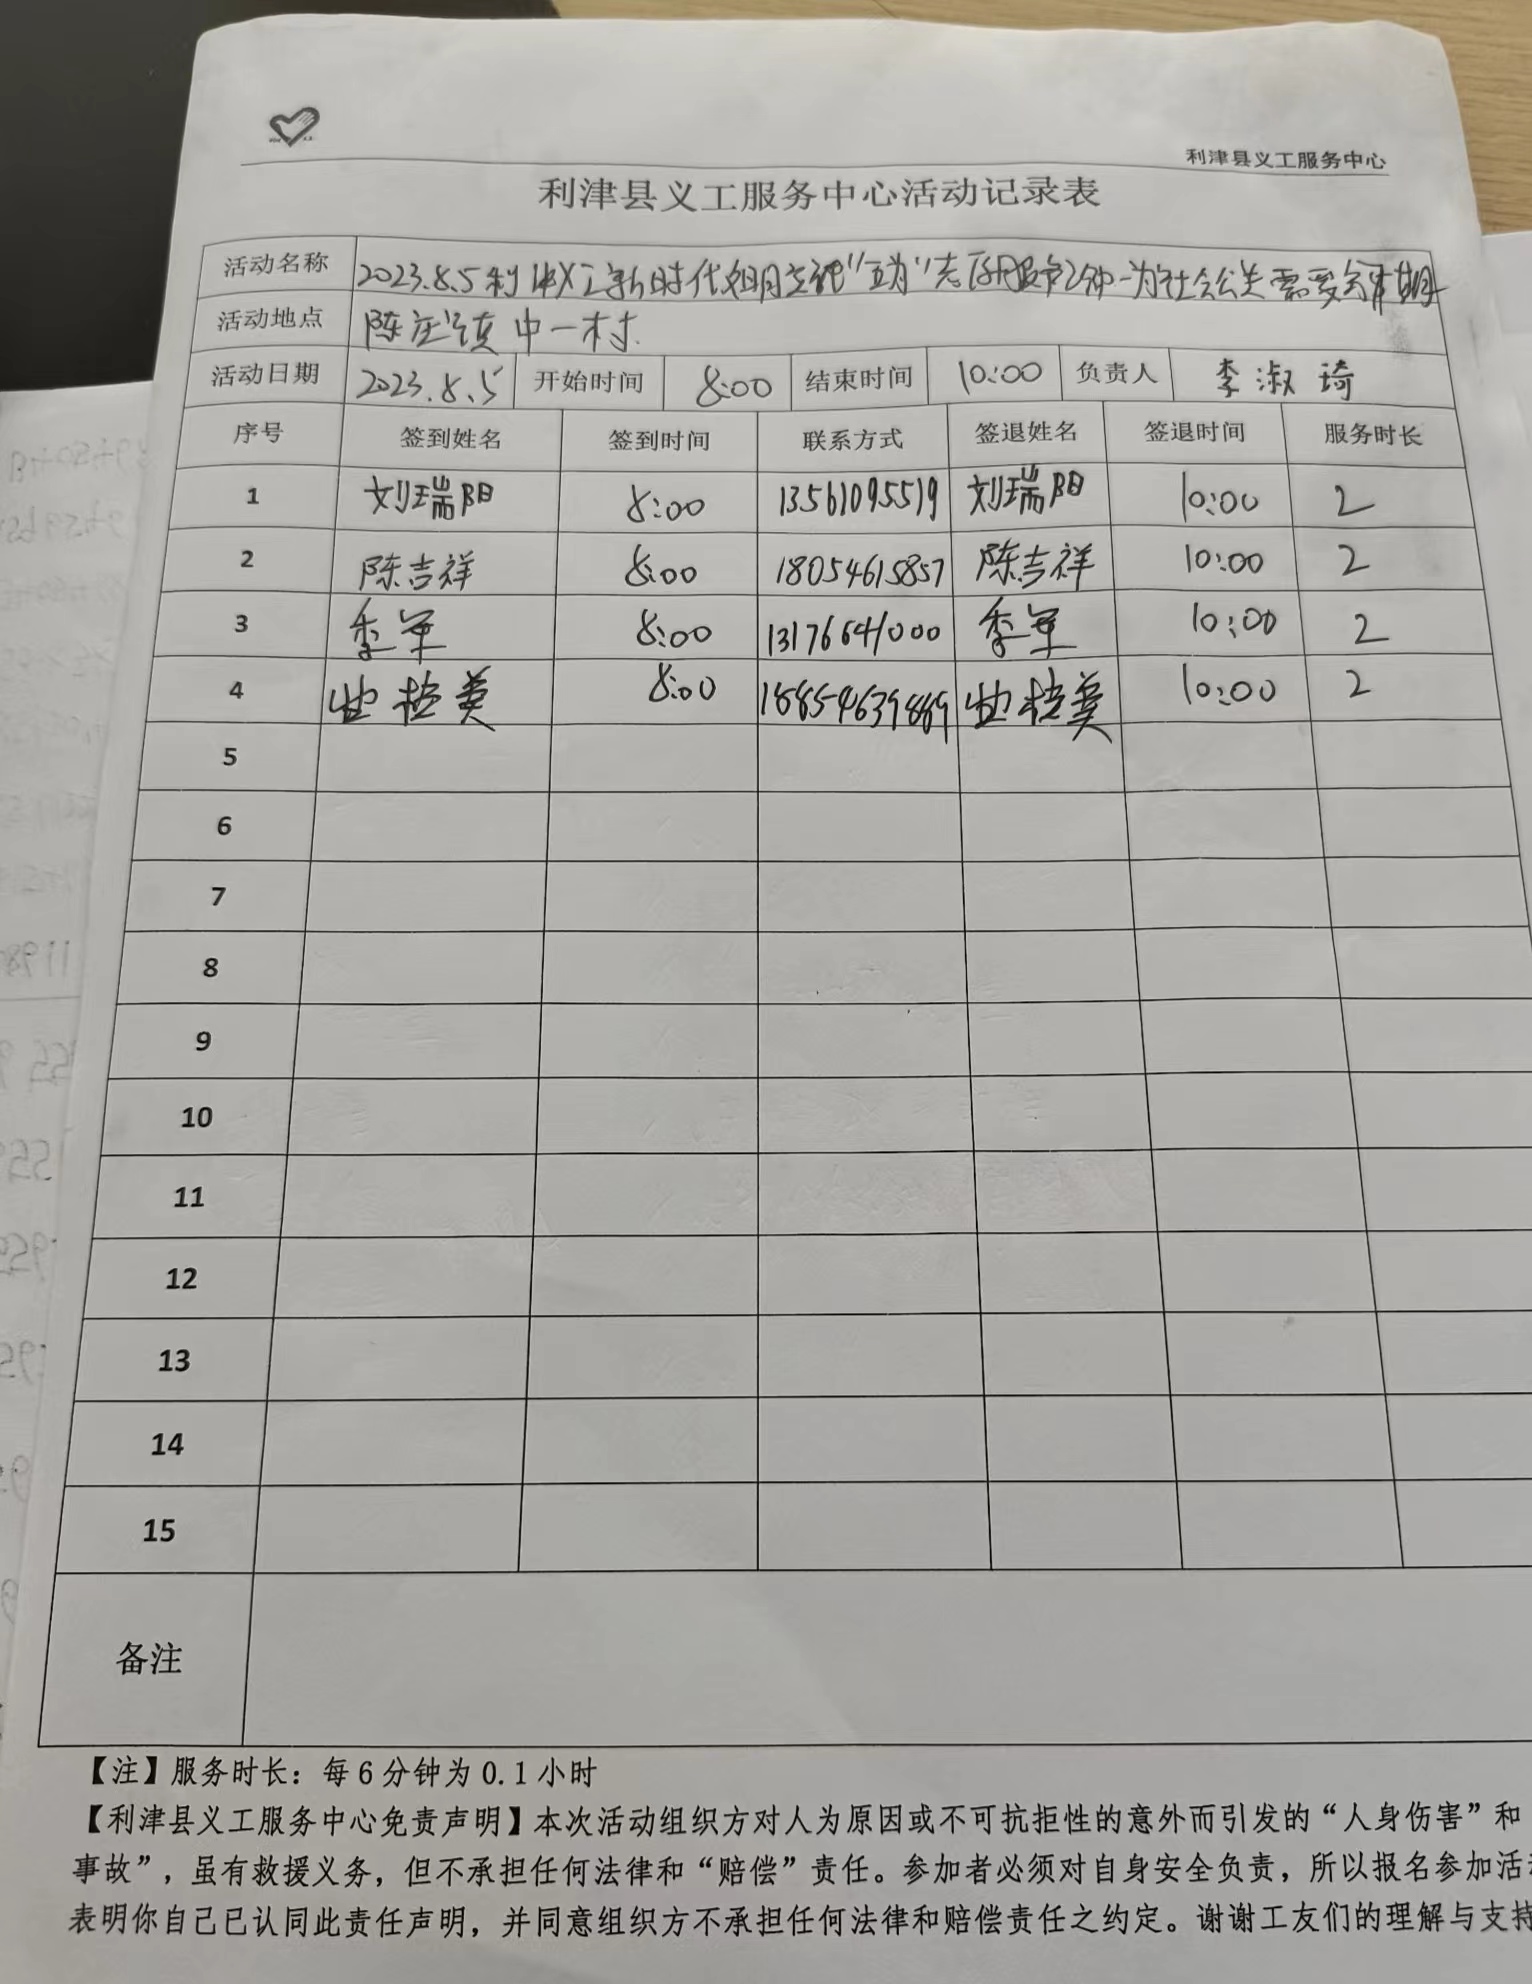 利津县义工服务中心
利津县义工服务中心活动记录表
活动名称 2023.8.5利津义工新时代文明实践“五为”志愿服务活动-为社会公益需要
活动地点 陈庄镇中一村
活动日期 2023.8.5 开始时间 8:00 结束时间 10:00 负责人 李淑琦
序号 签到姓名 签到时间 联系方式 签退姓名 签退时间 服务时长
1 刘瑞阳 8:00 13561095519 刘瑞阳 10:00 2
2 陈吉祥 8:00 18054615857 陈吉祥 10:00 2
3 季军 8:00 13176641000 季军 10:00 2
4 8:00 18854639889 10:00 2
5
6
7
8
9
10
11
12
13
14
15
备注
【注】服务时长：每6分钟为0.1小时
【利津县义工服务中心免责声明】本次活动组织方对人为原因或不可抗拒性的意外而引发的“人身伤害”和
事故”，虽有救援义务，但不承担任何法律和“赔偿”责任。参加者必须对自身安全负责，所以报名参加活
表明你自己已认同此责任声明，并同意组织方不承担任何法律和赔偿责任之约定。谢谢工友们的理解与支持